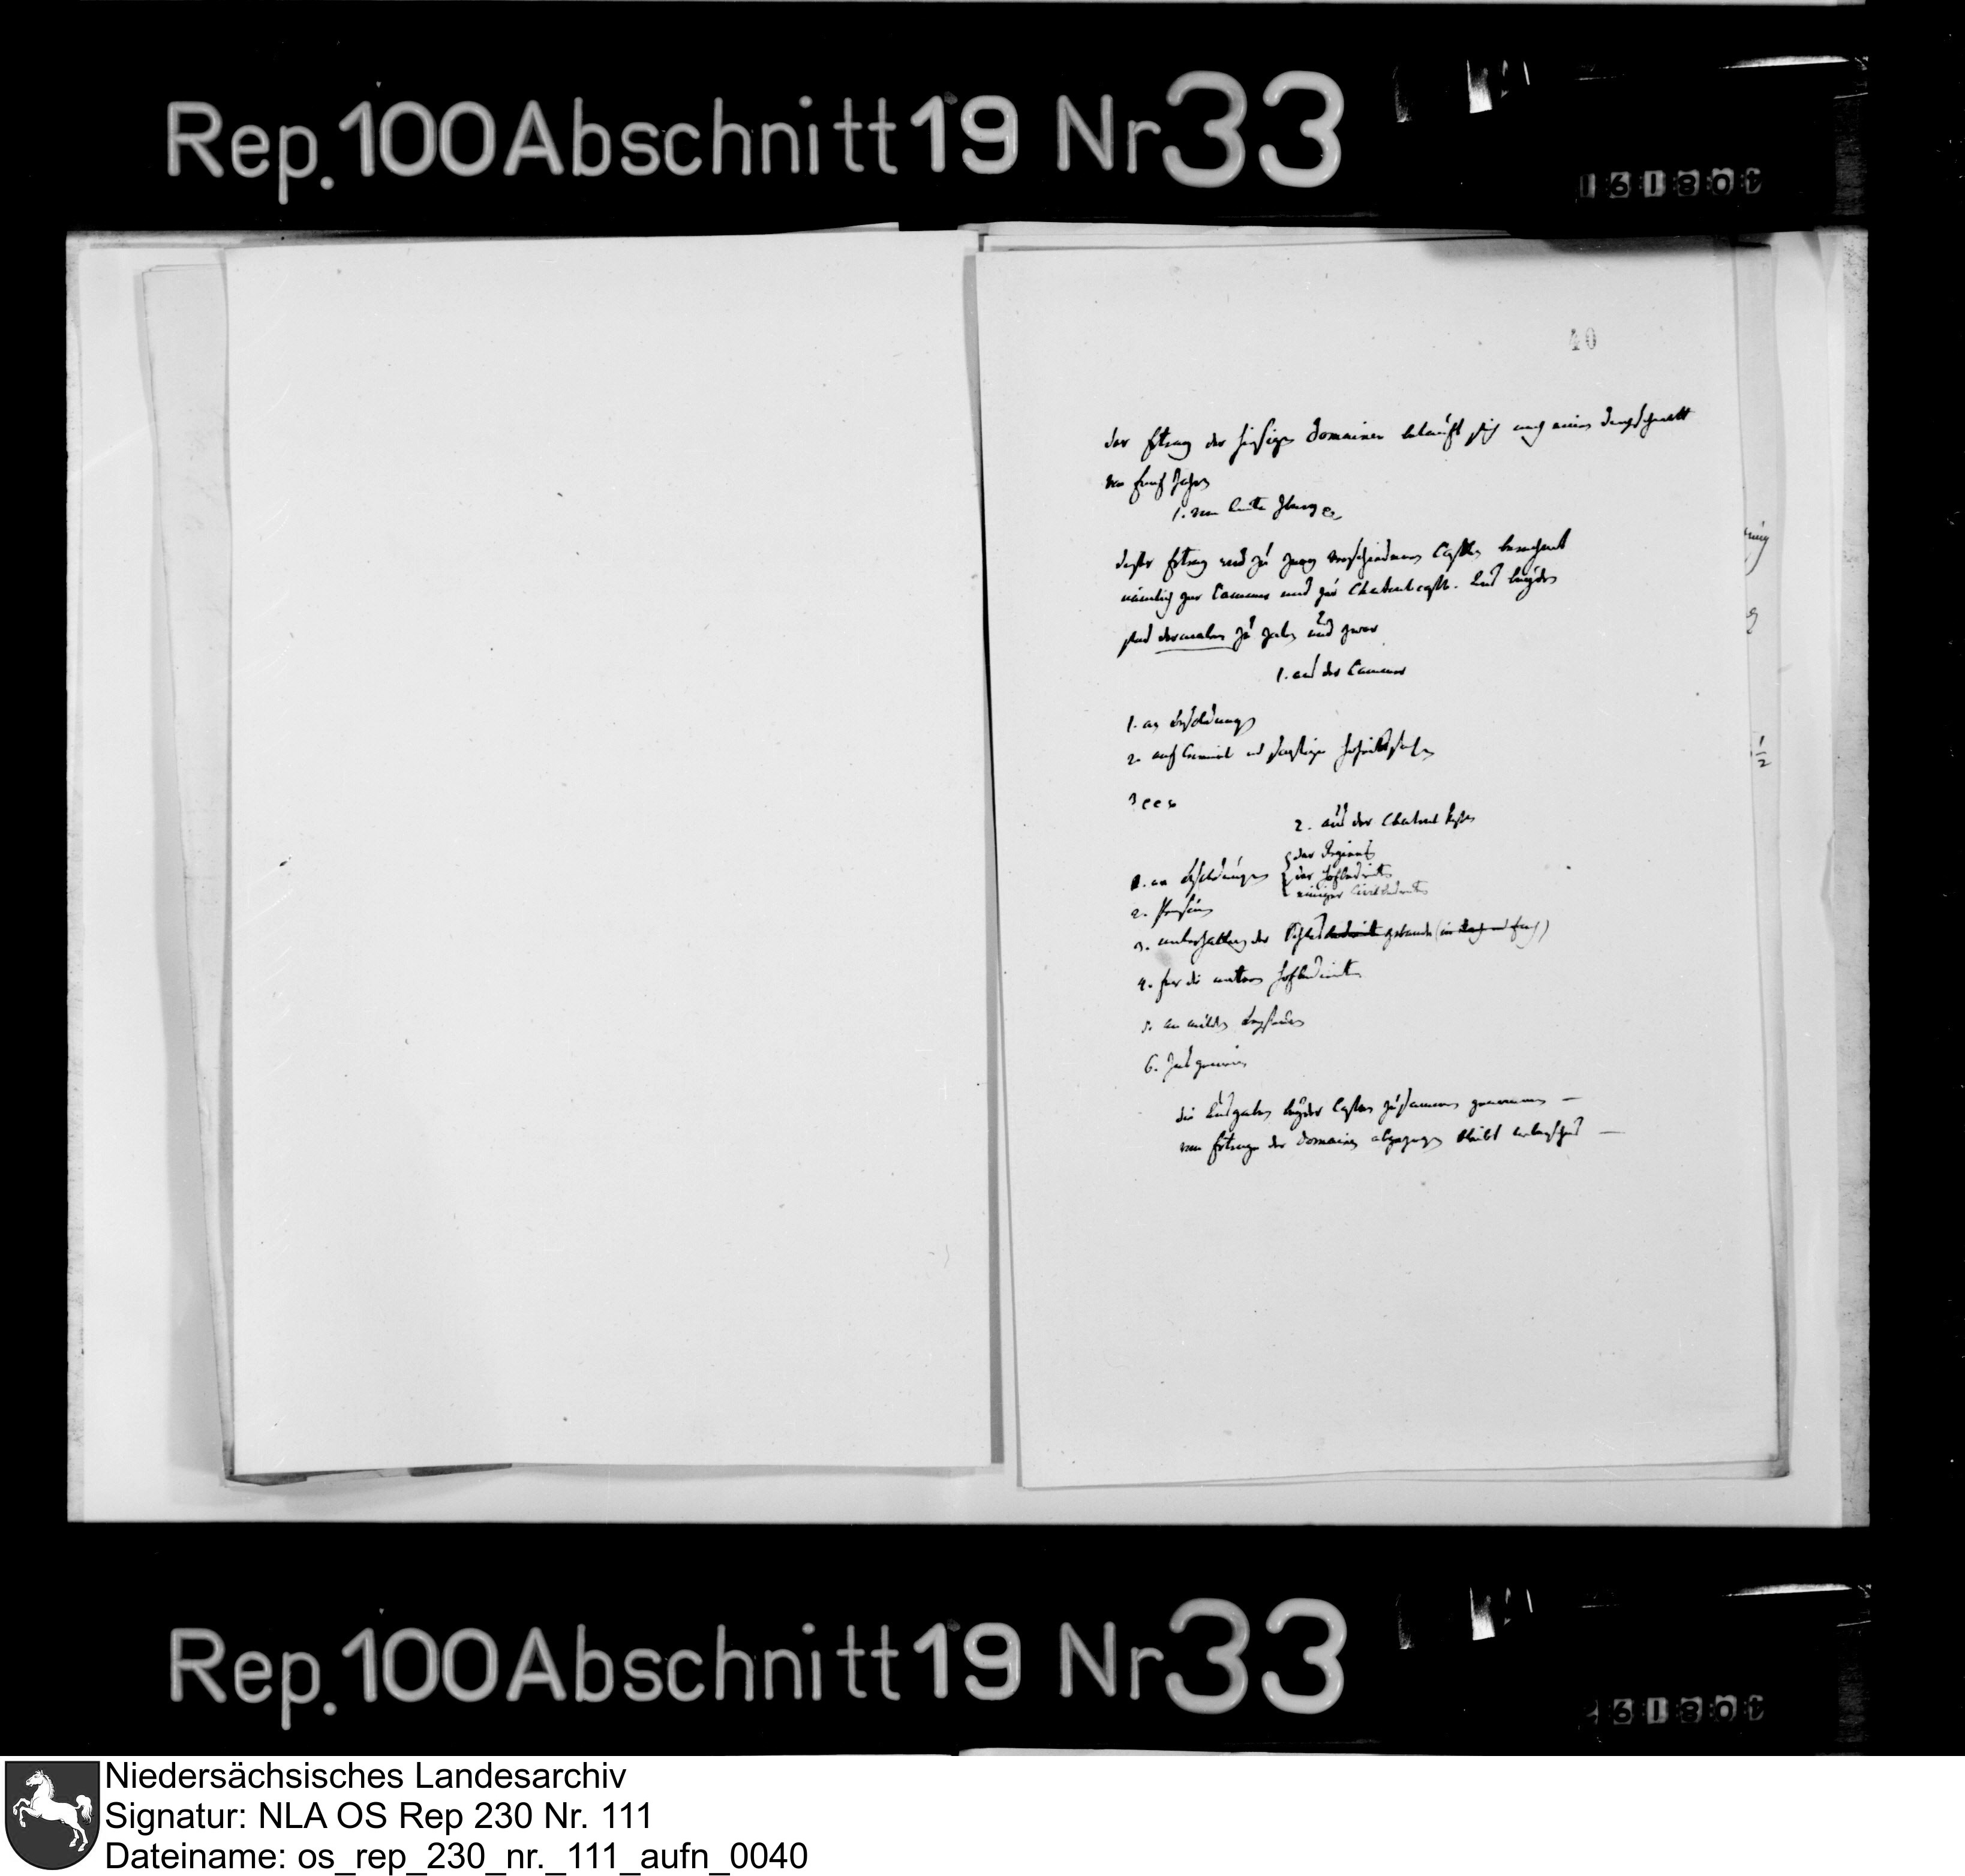 Rep. 100 Abschnitt 19 Nr 33
161801
40
der Ertrag der hiesigen Domainen beläuft sich nach einem Durchschnitt
von fünf Jahren
1. vom Amte Iburg
dieser Ertrag wird zu zween verschiedenen Cassen berechnet
nämlich zur Cammer und zur Chatoul casse. Aus beyden
sind dermalen zu zalen und zwar
1. aus der Cammer
1. an Besoldungen
2. auf Criminal und sonstige
3
2. aus der Chatoul Casse
1. an Besoldungen
der Regierung
der Hofbediente
einiger Civilbediente
2. Pension
3. unterhaltung der Schlos bediente gebäude (in Dach und Fach)
4. für die untern Hofbediente
5. an milden Beysteuern
6. Ins gemein
die Ausgaben beyder Cassen zusammen genommen —
vom Ertrage der Domainen abgezogen bleibt überschus —
1/2
Rep. 100 Abschnitt 19 Nr 33
61801
Niedersächsisches Landesarchiv
Signatur: NLA OS Rep 230 Nr. 111
Dateiname: os_rep_230_nr._111_aufn_0040